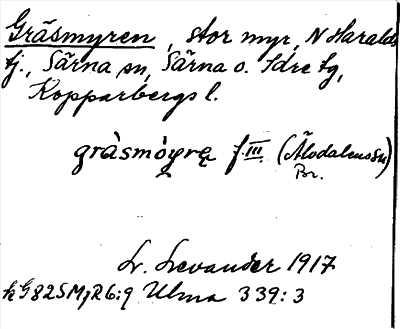 Gräsmyren, stor myr, N Haralds
tj., Särna sn, Särna o. Idre tg,
Kopparbergs l.
gràsmóyrę f. III (Älvdalens sn)
Por.
Lr. Levander 1917
k G 82 S M, R 6:9 Ulma 339:3